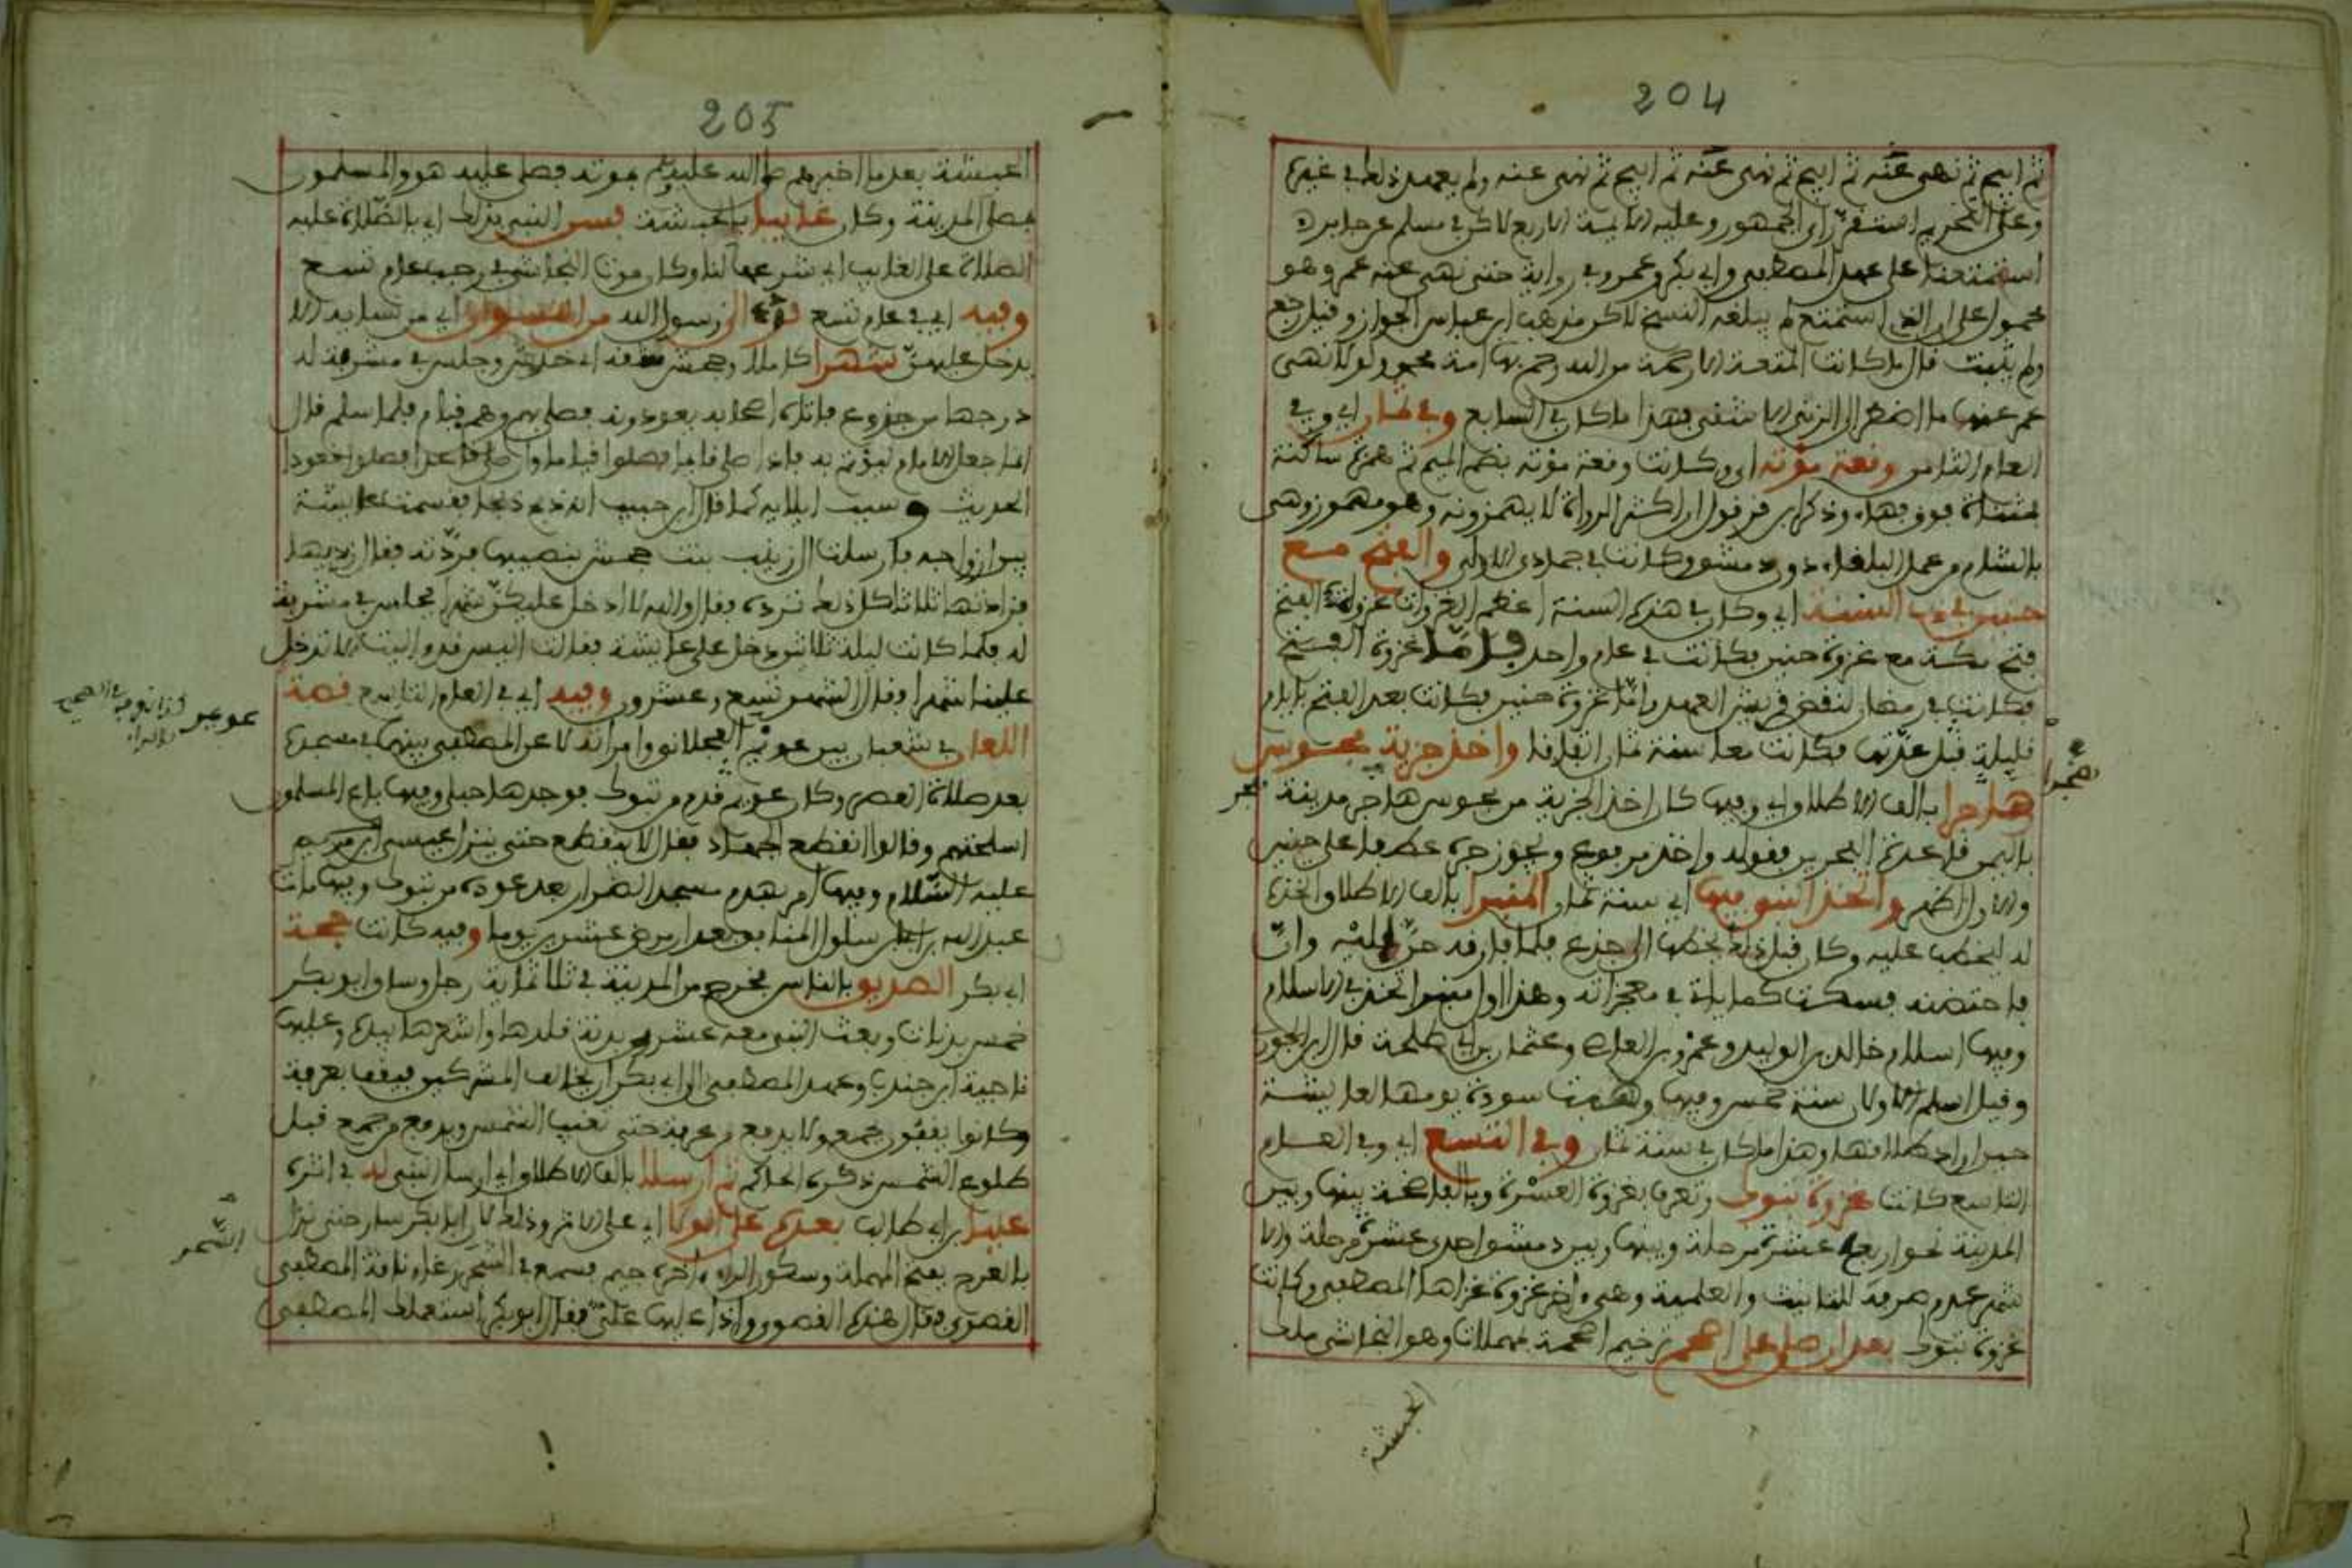 204
ثم ابيح ثم نهى عنه ثم ابيح ثم نهى عنه ثم ابيح ثم نهى عنه ولم يعهد ذلك في غيره
وعلى التحريم استقر راي الجمهور وعليه الايمة الاربع لاكن في مسلم عن جابر
استمتعنا على عهد المصطفى وابي بكر وعمر وفي رواية حتى نهى عنه عمر وهو
محمول على ان الذي استمتع لم يبلغه النسخ لاكن مذهب ابن عباس الجواز وقيل رجع
ولم يثبت قال ما كانت المتعة الا رحمة من الله رحم بها امة محمد ولولا نهى
عمر عنها ما اضطر الى الزنى الا شقي فهذا ما كان في السابع وفي ثمان اي وفي
العام الثامن وقعة مؤته اي وكانت وقعة مؤته بضم الميم ثم همزة ساكنة
مثناة فوق فهاء وذكر ابن قرقول ان اكثر الرواة لا يهمزونه وهو مهموز وهي
بالشام من عمل البلقاء دون دمشق وكانت في جمادى الاولى والفتح مع
حنين في ذي السنة اي وكان في هذه السنة اعظم الغزوات غزوة الفتح
فتح مكة مع غزوة حنين فكانت في عام واحد فاما غزوة الفتح
فكانت في رمضان لنقض قريش العهد واما غزوة حنين فكانت بعد الفتح بايام
قليلة قبل عدتها فكانت معا سنة ثمان اتفاقا واخذ جزية مجوس
هجرا بالف الاطلاق اي وفيها كان اخذ الجزية من مجوس هاجر مدينة
باليمن قاعدة البحرين فقوله واخذ مرفوع ويجوز جره عطفا على حنين
والاول اظهر واتخذ النبي فيها اي سنة ثمان المنبرا بالف الاطلاق اتخذه
له ليخطب عليه وكان قبل ذلك يخطب الى جذع فلما فارقه حن اليه وان
فاحتضنه فسكت كما ياتي في معجزاته وهذا اول منبر اتخذ في الاسلام
وفيها اسلام خالد بن الوليد وعمرو بن العاص وعثمان بن ابي طلحة قال ابن الجوزي
وقيل اسلم الاول سنة خمس وفيها وهبت سودة يومها لعايشة
حين اراد طلاقها وهذا ما كان في سنة ثمان وفي التسع اي وفي العام
التاسع كانت غزوة تبوك وتعرف بغزوة العسرة وبالفاضحة بينها وبين
المدينة نحو اربع عشرة مرحلة وبينها وبين دمشق احدى عشرة مرحلة والا
شهر عدم صرفه للتانيث والعلمية وهي اخر غزوة غزاها المصطفى وكانت
غزوة تبوك بعد ان صلى على اصحم ترخيم اصحمة بمهملات وهو النجاشي ملك
الحبشة
هجرا
205
الحبشة بعد ما اخبرهم صلى الله عليه وسلم بموته فصلى عليه هو والمسلمون
بمصلى المدينة وكان غايبا بالحبشة فسن النبي بذلك اي بالصلاة عليه
الصلاة على الغايب اي شرعها لنا وكان موت النجاشي في رجب عام تسع
وفيه اي في عام تسع الى رسول الله من النسوان اي من نسايه الا
يدخل عليهن شهرا كاملا وجحش شقه اي خدش وجلس في مشربة له
درجها من جذوع فاتاه اصحابه يعودونه فصلى بهم وهم قيام فلما سلم قال
انما جعل الامام ليؤتم به فاذا صلى قايما فصلوا قياما واذا صلى قاعدا فصلوا قعودا
الحديث وسبب ايلايه كما قال ابن حبيب انه ذبح ذبحا فقسمته عايشة
بين ازواجه فارسلت الى زينب بنت جحش بنصيبها فردته فقال زيديها
فزادتها ثلاثا كل ذلك ترده فقال والله لا ادخل عليكن شهرا فجلس في مشربة
له فلما كانت ليلة ثلاثين دخل على عايشة فقالت اليس قد واليت الا تدخل
علينا شهرا وقال الشهر تسع وعشرون وفيه اي في العام التاسع قصة
اللعان في شعبان بين عويمر العجلاني وامراته لاعن المصطفى بينهما في مسجده
بعد صلاة العصر وكان عويمر قدم من تبوك فوجدها حبلى وفيها باع المسلمون
اسلحتهم وقالوا انقطع الجهاد فقال لا ينقطع حتى ينزل عيسى ابن مريم
عليه السلام وفيها امر بهدم مسجد الضرار بعد عوده من تبوك وفيها مات
عبد الله بن ابي بن سلول المنافق بعد ان مرض عشرين يوما وفيه كانت حجة
ابي بكر الصديق بالناس فخرج من المدينة في ثلاثماية رجل وساق ابو بكر
خمس بدنات وبعث النبي معه عشرين بدنة قلدها واشعرها بيده وعليها
ناجية ابن جندب وعهد المصطفى الى ابي بكر ان يخالف المشركين فيقف بعرفة
وكانوا يقفون بجمع ولا يدفع من عرفة حتى تغيب الشمس ويدفع من جمع قبل
طلوع الشمس ذكره الحاكم ثم ارسلا بالف الاطلاق اي ارسل النبي له في اثره
عليا بن ابي طالب بعده على الولا اي على الاثر وذلك ان ابا بكر سار حتى نزل
بالعرج بفتح المهملة وسكون الراء اخره جيم فسمع في السحر رغاء ناقة المصطفى
القصوى فقال هذه القصوى واذا عليها علي فقال ابو بكر استعملك المصطفى
عويمر
السحر